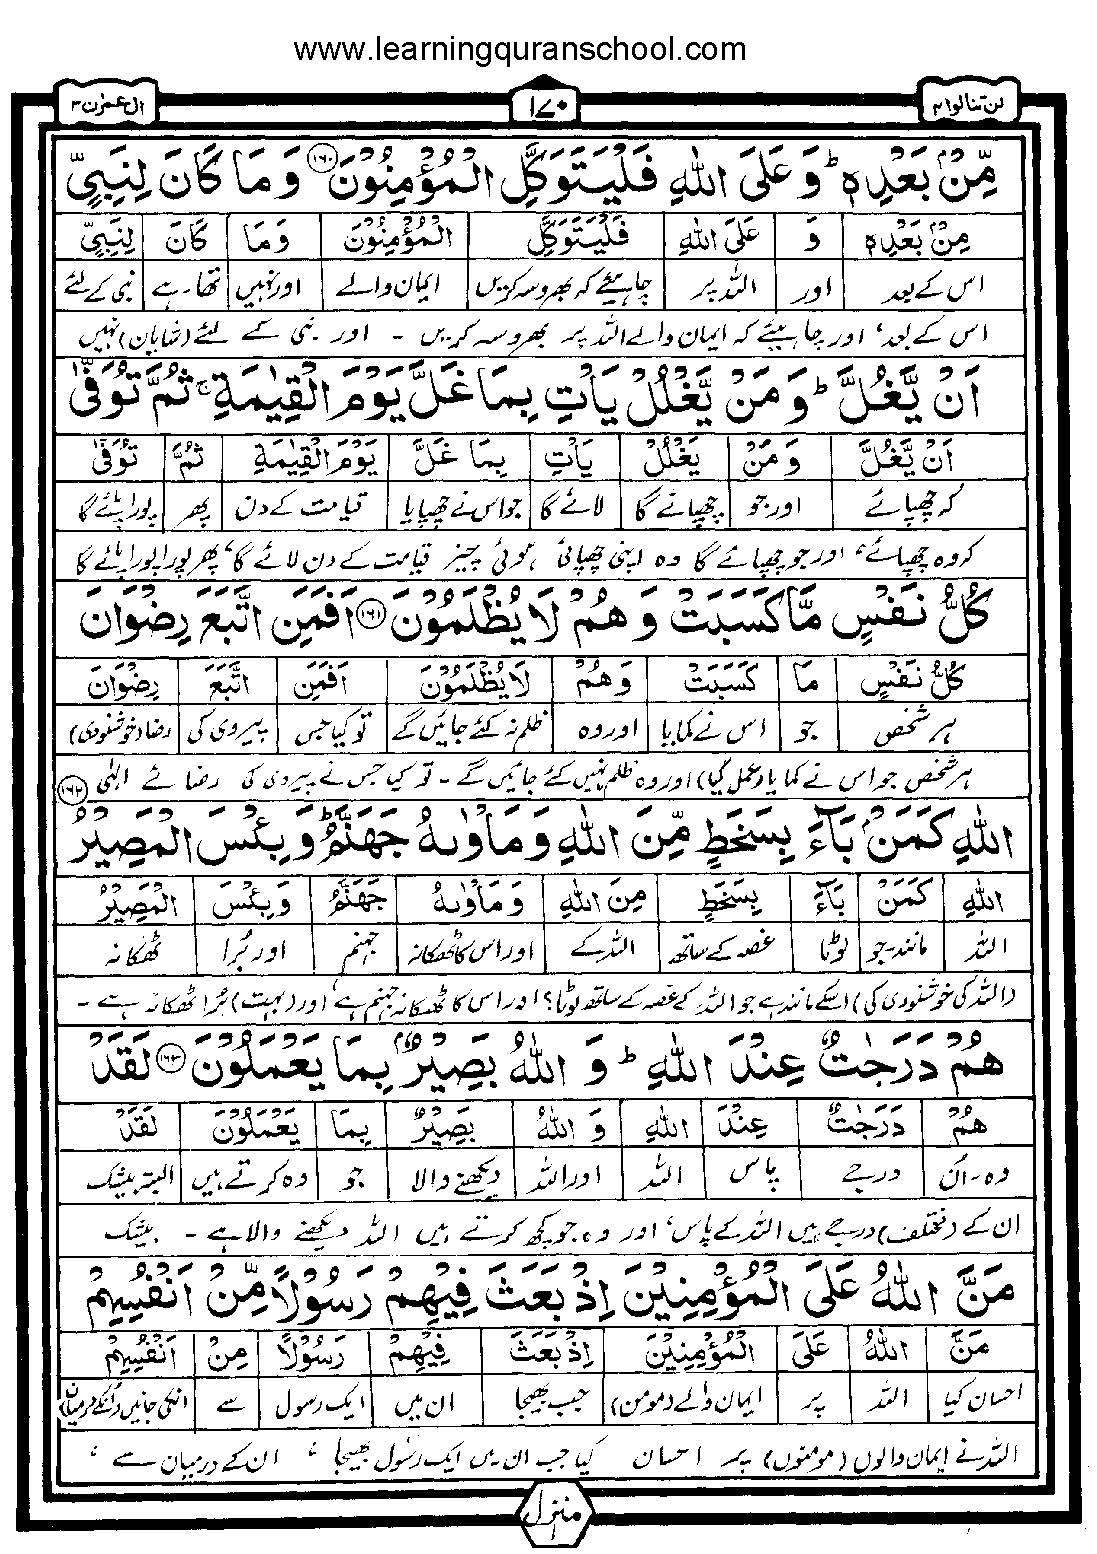 www.learningquranschool.com
لن تنالوا ۴
۱۷۰
ال عمرٰن ۳
مِّنْۢ بَعْدِهٖ ؕ وَ عَلَى اللّٰهِ فَلْیَتَوَكَّلِ الْمُؤْمِنُوْنَ ۝۱۶۰ وَ مَا كَانَ لِنَبِیٍّ
مِنْۢ بَعْدِهٖ وَ عَلَى اللّٰهِ فَلْیَتَوَكَّلِ الْمُؤْمِنُوْنَ وَمَا كَانَ لِنَبِیٍّ
اس کے بعد اور اللہ پر چاہیئے کہ بھروسہ کریں ایمان والے اور نہیں تھا۔ہے نبی کے لئے
اس کے بعد، اور چاہیئے کہ ایمان والے اللہ پر بھروسہ کریں ۔ اور نبی کے لئے (شایان) نہیں
اَنْ یَّغُلَّ ؕ وَ مَنْ یَّغْلُلْ یَاْتِ بِمَا غَلَّ یَوْمَ الْقِیٰمَةِ ۚ ثُمَّ تُوَفّٰى
اَنْ یَّغُلَّ وَ مَنْ یَغْلُلْ یَاْتِ بِمَا غَلَّ یَوْمَ الْقِیٰمَةِ ثُمَّ تُوَفّٰى
کہ چھپائے اور جو چھپائے گا لائے گا جو اس نے چھپایا قیامت کے دن پھر پورا پائے گا
کہ وہ چھپائے، اور جو چھپائے گا وہ اپنی چھپائی ہوئی چیز قیامت کے دن لائے گا، پھر پورا پورا پائے گا
كُلُّ نَفْسٍ مَّا كَسَبَتْ وَ هُمْ لَا یُظْلَمُوْنَ ۝۱۶۱ اَفَمَنِ اتَّبَعَ رِضْوَانَ
كُلُّ نَفْسٍ مَا كَسَبَتْ وَ هُمْ لَا یُظْلَمُوْنَ اَفَمَنِ اتَّبَعَ رِضْوَانَ
ہر شخص جو اس نے کمایا اور وہ ظلم نہ کئے جائیں گے تو کیا جس پیروی کی رضا (خوشنودی)
ہر شخص جو اس نے کمایا (عمل کیا) اور وہ ظلم نہیں کئے جائیں گے ۔ تو کیا جس نے پیروی کی رضائے الٰہی ۝۱۶۲
اللّٰهِ كَمَنْۢ بَآءَ بِسَخَطٍ مِّنَ اللّٰهِ وَ مَاْوٰىهُ جَهَنَّمُ ؕ وَ بِئْسَ الْمَصِیْرُ
اللّٰهِ كَمَنْ بَآءَ بِسَخَطٍ مِنَ اللّٰهِ وَ مَاْوٰىهُ جَهَنَّمُ وَ بِئْسَ الْمَصِیْرُ
اللہ مانند جو لوٹا غصہ کے ساتھ اللہ کے اور اس کا ٹھکانہ جہنم اور بُرا ٹھکانہ
(اللہ کی خوشنودی کی) اسکے مانند ہے جو اللہ کے غصہ کے ساتھ لوٹا؟ اور اس کا ٹھکانہ جہنم ہے، اور (بہت) بُرا ٹھکانہ ہے ۔
هُمْ دَرَجٰتٌ عِنْدَ اللّٰهِ ؕ وَ اللّٰهُ بَصِیْرٌۢ بِمَا یَعْمَلُوْنَ ۝۱۶۳ لَقَدْ
هُمْ دَرَجٰتٌ عِنْدَ اللّٰهِ وَ اللّٰهُ بَصِیْرٌ بِمَا یَعْمَلُوْنَ لَقَدْ
وہ۔اُن درجے پاس اللہ اور اللہ دیکھنے والا جو وہ کرتے ہیں البتہ بیشک
ان کے (مختلف) درجے ہیں اللہ کے پاس، اور وہ جو کچھ کرتے ہیں اللہ دیکھنے والا ہے ۔ بیشک
مَنَّ اللّٰهُ عَلَى الْمُؤْمِنِیْنَ اِذْ بَعَثَ فِیْهِمْ رَسُوْلًا مِّنْ اَنْفُسِهِمْ
مَنَّ اللّٰهُ عَلَى الْمُؤْمِنِیْنَ اِذْ بَعَثَ فِیْهِمْ رَسُوْلًا مِنْ اَنْفُسِهِمْ
احسان کیا اللہ پر ایمان والے (مومن) جب بھیجا ان میں ایک رسول سے انکی جانیں (اُنکے درمیان)
اللہ نے ایمان والوں (مومنوں) پر احسان کیا جب ان میں ایک رسُول بھیجا ، ان کے درمیان سے ،
منزل ۱